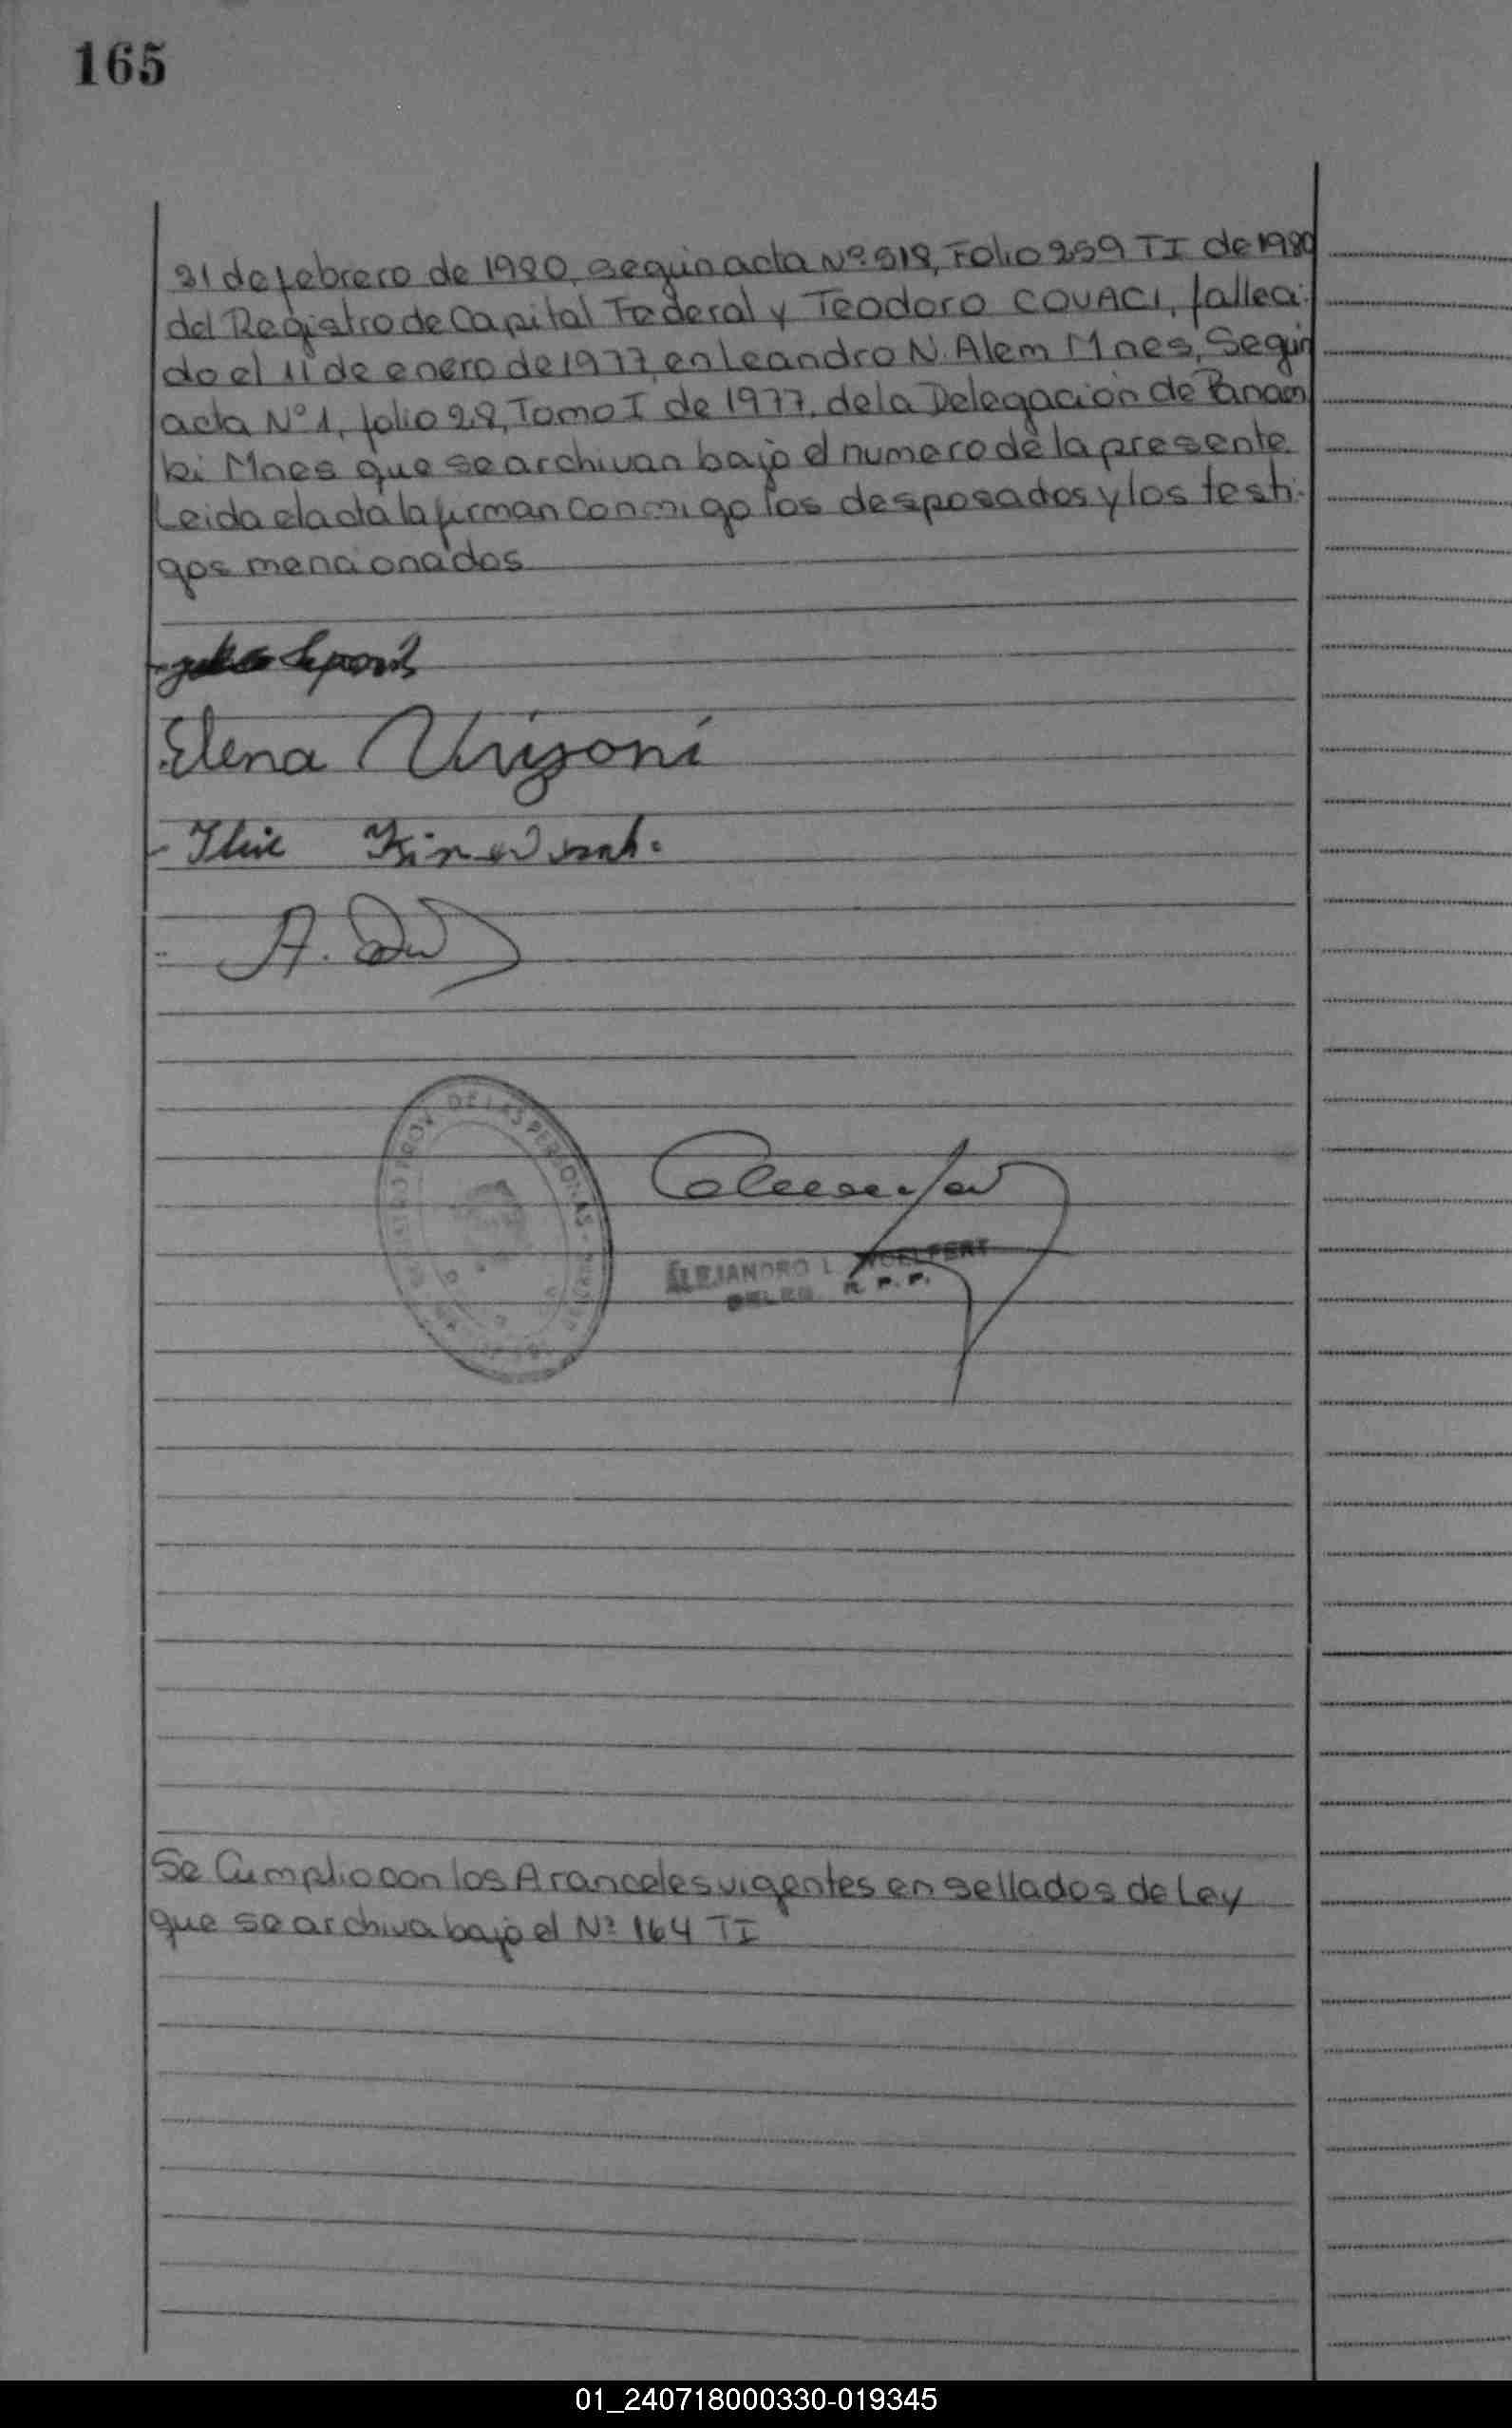 165
21 de febrero de 1980, según acta Nº 518, Folio 259 TI de 1980
del Registro de Capital Federal y Teodoro COVACI, falleci-
do el 11 de enero de 1977, en Leandro N. Alem Mnes, Según
acta Nº 1, folio 28, Tomo I de 1977, de la Delegación de Panam
bi Mnes que se archivan bajo el numero de la presente.
Leida el acta la firman conmigo los desposados y los testi-
gos mencionados
Elena
A.
DE LAS PERSONAS
ALEJANDRO L. WOELFERT
DELEG. R. P. P.
Se Cumplio con los Aranceles vigentes en sellados de Ley
que se archiva bajo el Nº 164 TI
01_240718000330-019345